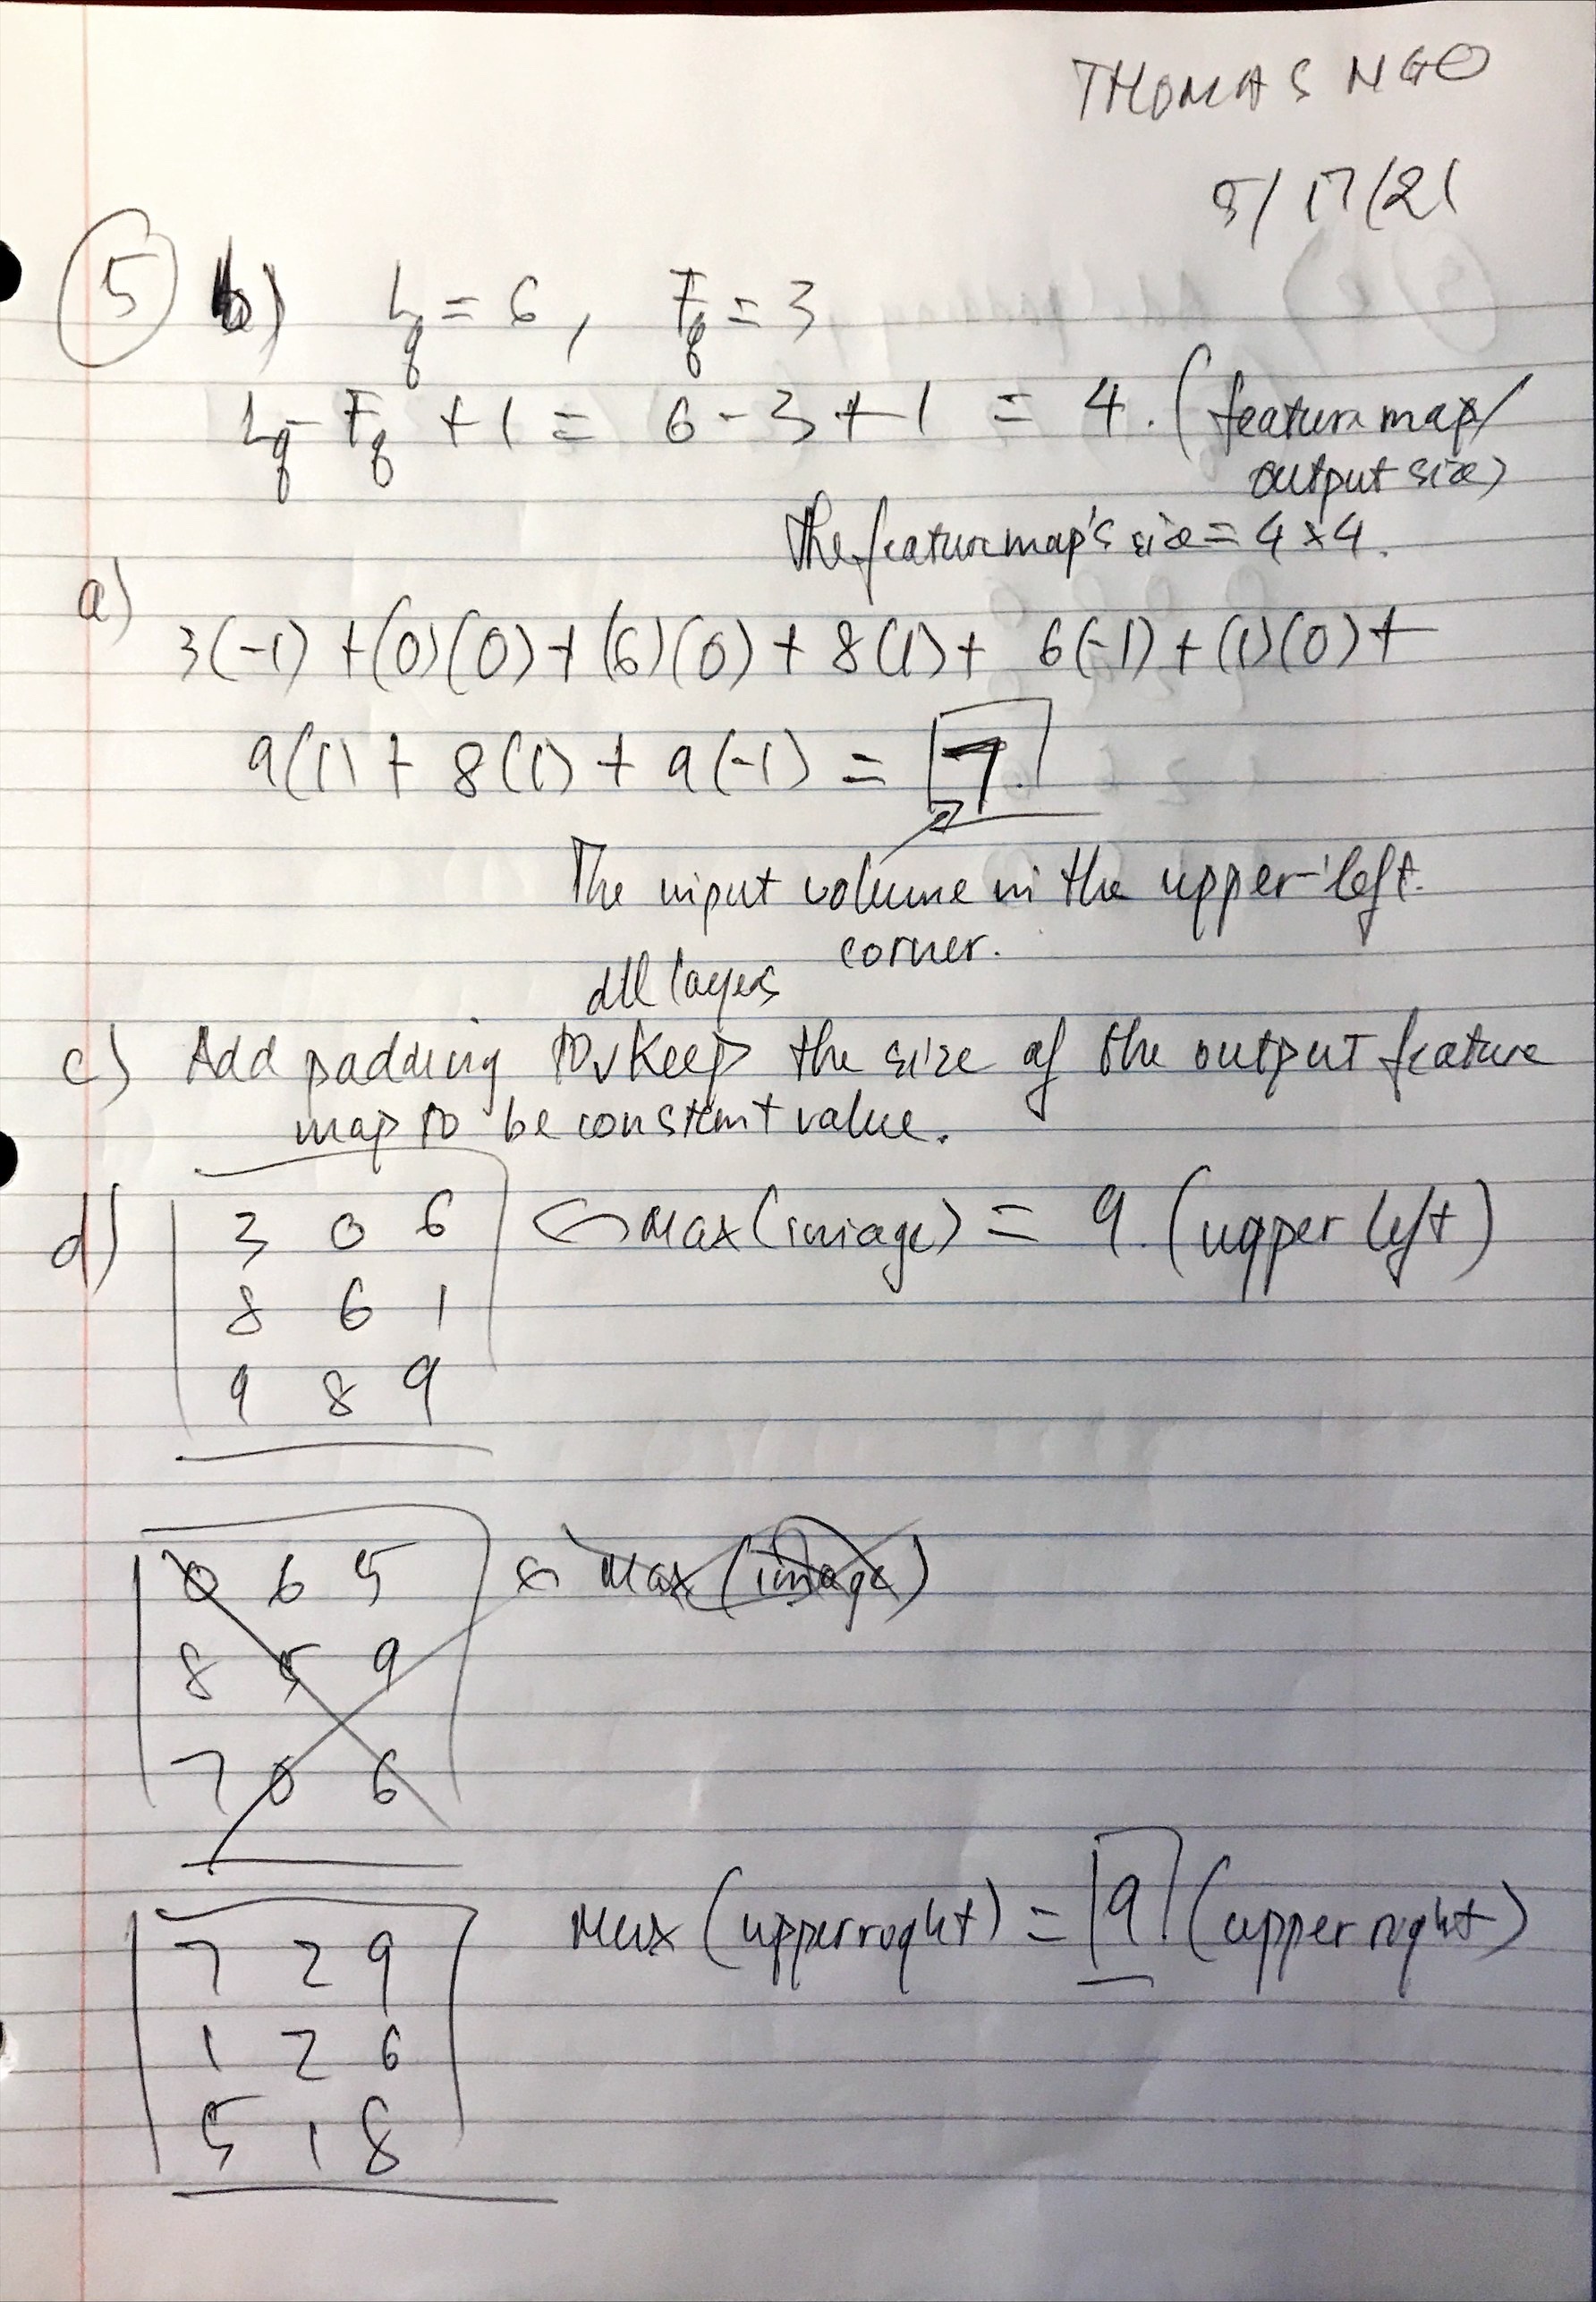 THOMAS NGO
5/17/21
5 b) Lq = 6, Fq = 3
Lq - Fq + 1 = 6 - 3 + 1 = 4. (feature map/
output size)
The feature map's size = 4 x 4.
a)
3(-1) + (0)(0) + (6)(0) + 8(1) + 6(-1) + (1)(0) +
9(1) + 8(1) + 9(-1) = 7.
The input volume in the upper-left
corner.
all layers
c) Add padding to keep the size of the output feature
map to be constant value.
d) 3 0 6 Max(image) = 9. (upper left)
8 6 1
9 8 9
0 6 5 Max (image)
8 5 9
7 0 6
7 2 9 Max (upper roght) = 9 (upper right)
1 2 6
5 1 8